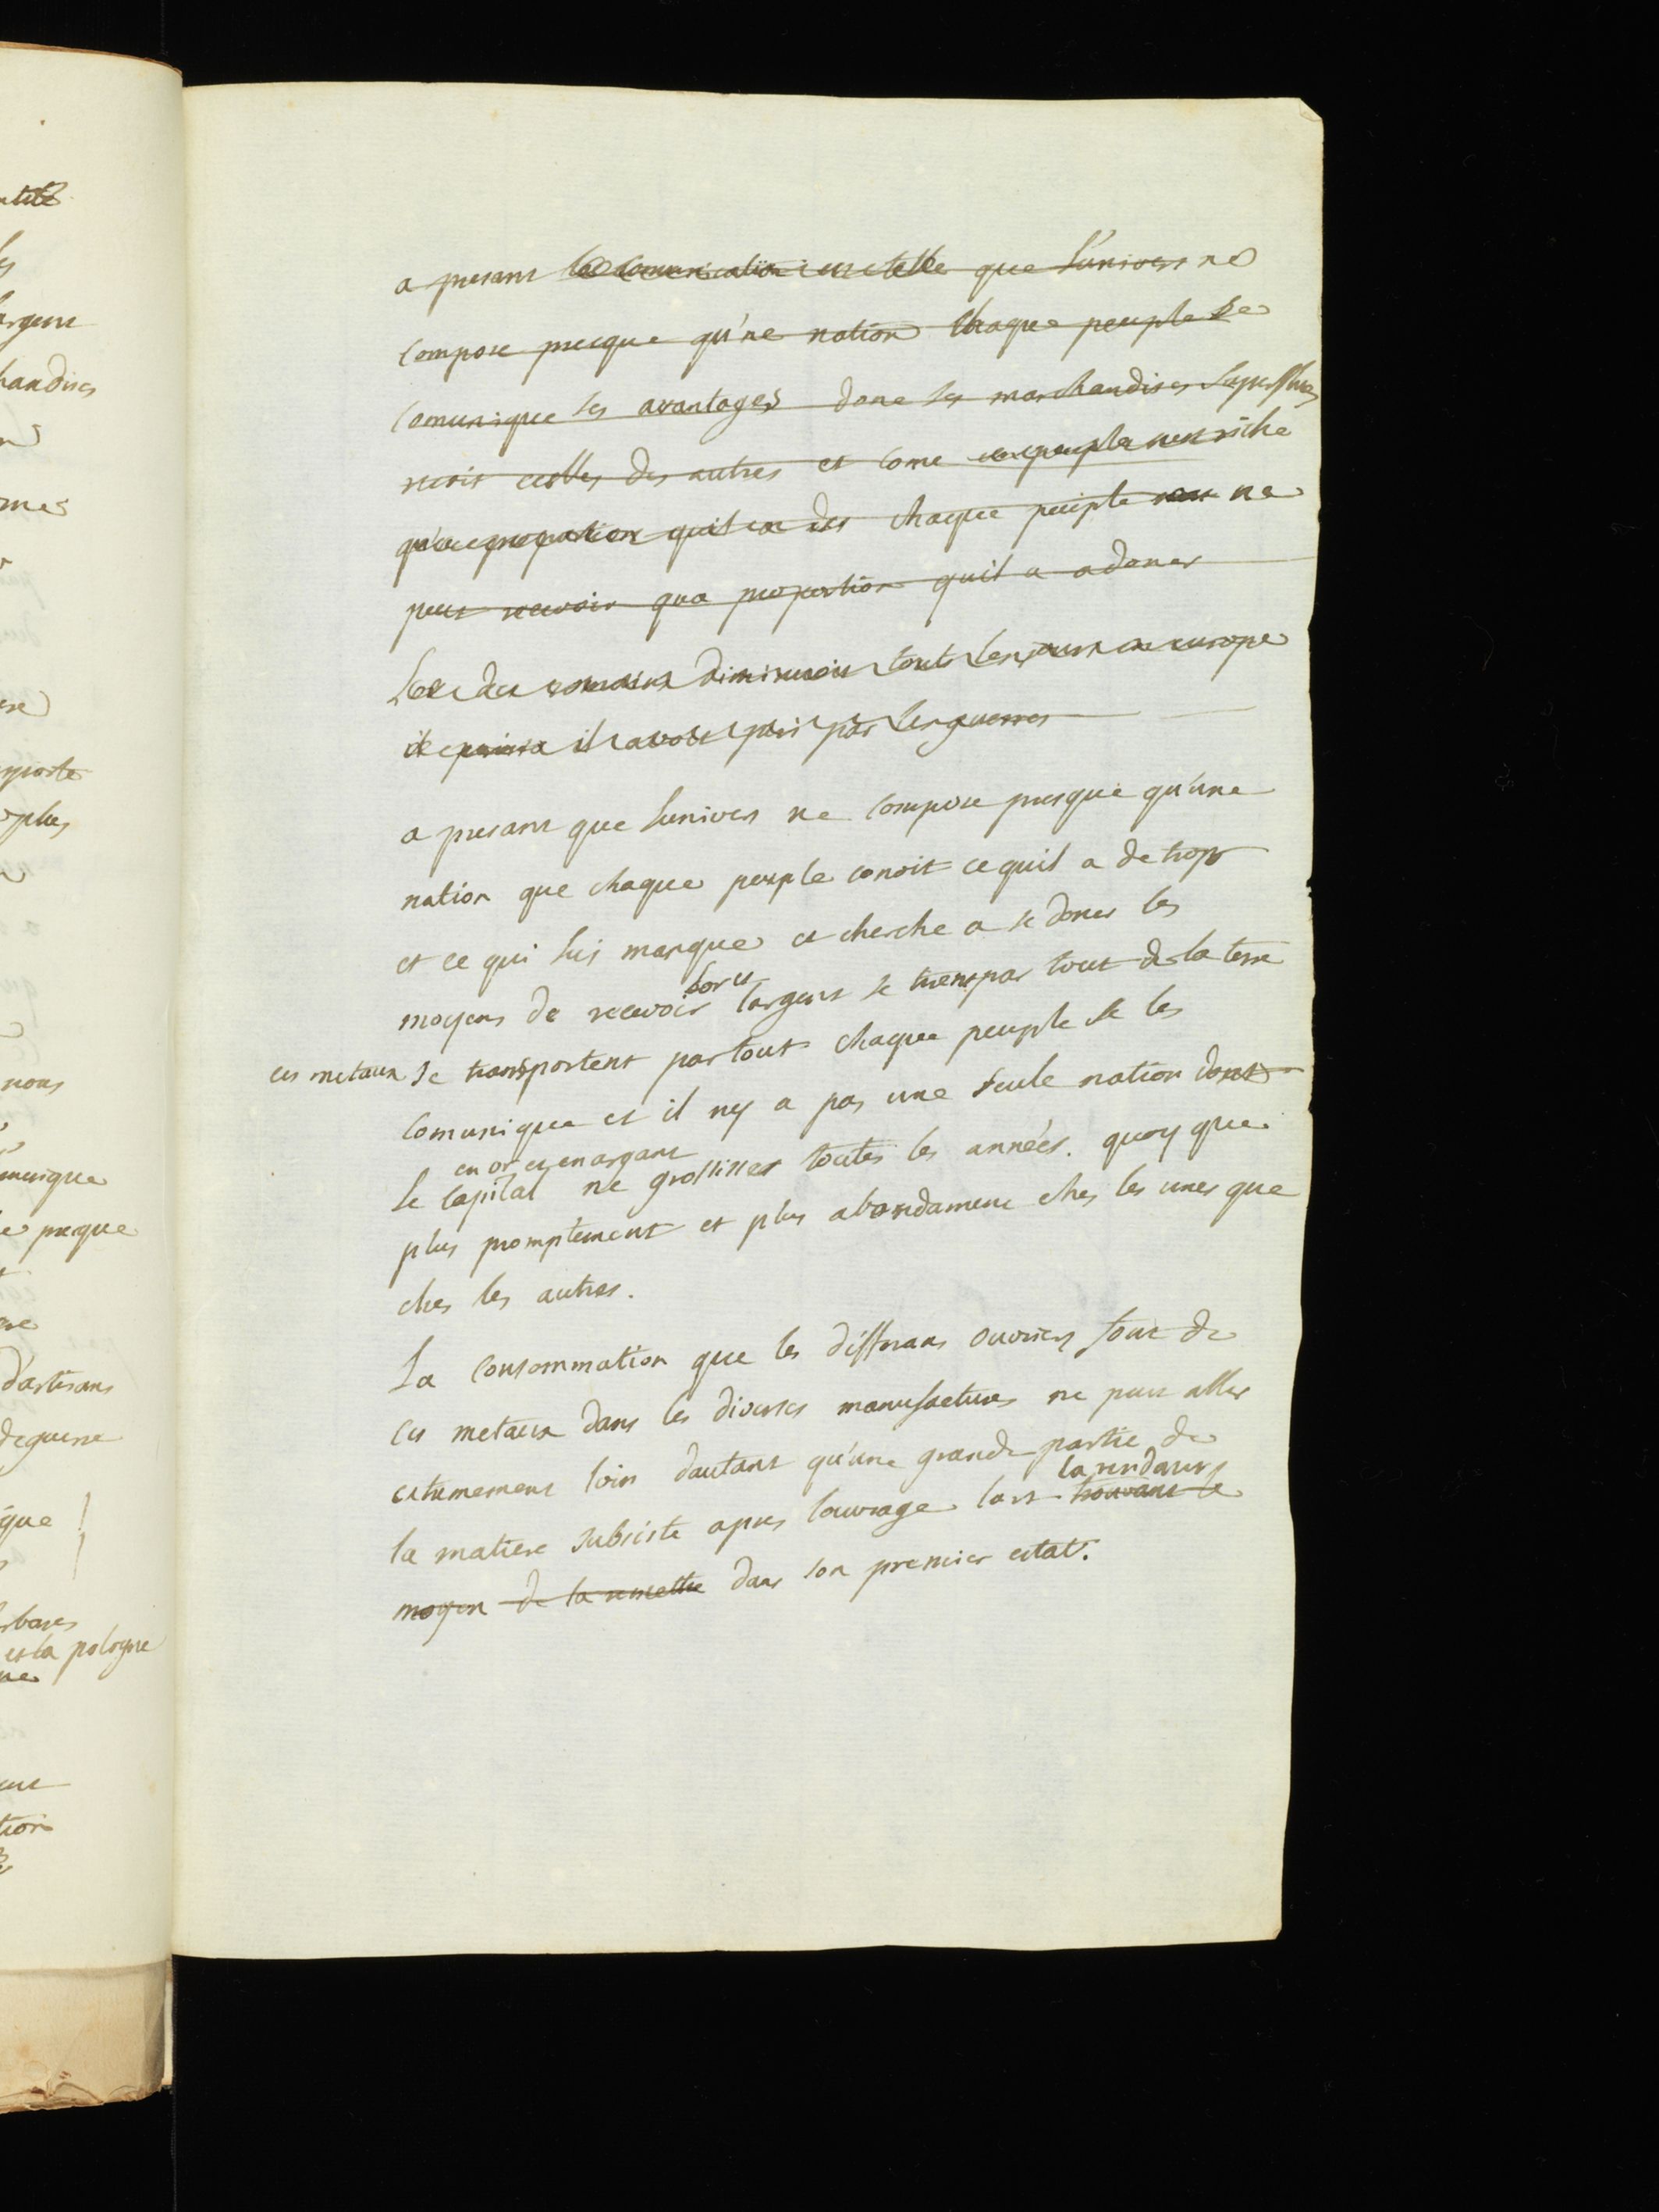 a presant la comunication est telle que l'univers ne
compose presque qu'ne nation chaque peuple se
comunique ses avantages done ses marchandises superflues
recoit celles des autres et come un peuple nest riche
qu'a proportion quil en des chaque peuple ne
peut recevoir qua proportion quil a a doner
Lor des romains diminuoit tout les jours en europe
il perissa il avoit peri par les guerres
a presant que lunivers ne compose presque qu'une
nation que chaque peuple conoit ce quil a de trop
et ce qui lui manque et cherche a se doner les
moyens de recevoir lor et largent se trenspar tout de la terre
ces metaux se transportent partout chaque peuple se les
comunique et il ny a pas une seule nation dont
le capital en or et en argant ne grossisse toutes les années. quoy que
plus promptement et plus abondament ches les unes que
ches les autres.
La consommation que les differans ouvriers font de
ces metaux dans les diverses manufactures ne peut aller
extrememens loin dautant qu'une grande partie de
la matiere subsiste apres louvrage lart trouvant le la rendant
moyen de la remettre dans son premier estat.
ntité
les
argent
handises
mes
porte
plus
nous
merique
presque
d'artisans
de guerre
que
barbares
et la pologne
ne
tion